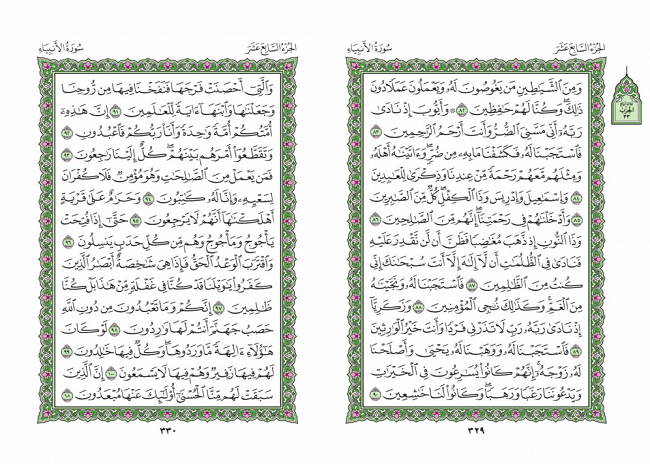 الجُزْءُ السَّابِعَ عَشَرَ سُورَةُ الأَنبِيَاءِ
وَمِنَ ٱلشَّيَٰطِينِ مَن يَغُوصُونَ لَهُۥ وَيَعْمَلُونَ عَمَلًا دُونَ
ذَٰلِكَۖ وَكُنَّا لَهُمْ حَٰفِظِينَ ٨٢ ۞ وَأَيُّوبَ إِذْ نَادَىٰ
رَبَّهُۥٓ أَنِّي مَسَّنِيَ ٱلضُّرُّ وَأَنتَ أَرْحَمُ ٱلرَّٰحِمِينَ ٨٣
فَٱسْتَجَبْنَا لَهُۥ فَكَشَفْنَا مَا بِهِۦ مِن ضُرٍّۖ وَءَاتَيْنَٰهُ أَهْلَهُۥ
وَمِثْلَهُم مَّعَهُمْ رَحْمَةً مِّنْ عِندِنَا وَذِكْرَىٰ لِلْعَٰبِدِينَ
٨٤ وَإِسْمَٰعِيلَ وَإِدْرِيسَ وَذَا ٱلْكِفْلِۖ كُلٌّ مِّنَ ٱلصَّٰبِرِينَ
٨٥ وَأَدْخَلْنَٰهُمْ فِي رَحْمَتِنَآۖ إِنَّهُم مِّنَ ٱلصَّٰلِحِينَ ٨٦
وَذَا ٱلنُّونِ إِذ ذَّهَبَ مُغَٰضِبًا فَظَنَّ أَن لَّن نَّقْدِرَ عَلَيْهِ
فَنَادَىٰ فِي ٱلظُّلُمَٰتِ أَن لَّآ إِلَٰهَ إِلَّآ أَنتَ سُبْحَٰنَكَ إِنِّي
كُنتُ مِنَ ٱلظَّٰلِمِينَ ٨٧ فَٱسْتَجَبْنَا لَهُۥ وَنَجَّيْنَٰهُ
مِنَ ٱلْغَمِّۚ وَكَذَٰلِكَ نُۨجِي ٱلْمُؤْمِنِينَ ٨٨ وَزَكَرِيَّآ
إِذْ نَادَىٰ رَبَّهُۥ رَبِّ لَا تَذَرْنِي فَرْدًا وَأَنتَ خَيْرُ ٱلْوَٰرِثِينَ
٨٩ فَٱسْتَجَبْنَا لَهُۥ وَوَهَبْنَا لَهُۥ يَحْيَىٰ وَأَصْلَحْنَا
لَهُۥ زَوْجَهُۥٓۚ إِنَّهُمْ كَانُوا۟ يُسَٰرِعُونَ فِي ٱلْخَيْرَٰتِ
وَيَدْعُونَنَا رَغَبًا وَرَهَبًاۖ وَكَانُوا۟ لَنَا خَٰشِعِينَ ٩٠
٣٢٩
الحِزْب
٣٣
الجُزْءُ السَّابِعَ عَشَرَ سُورَةُ الأَنبِيَاءِ
وَٱلَّتِيٓ أَحْصَنَتْ فَرْجَهَا فَنَفَخْنَا فِيهَا مِن رُّوحِنَا
وَجَعَلْنَٰهَا وَٱبْنَهَآ ءَايَةً لِّلْعَٰلَمِينَ ٩١ إِنَّ هَٰذِهِۦٓ
أُمَّتُكُمْ أُمَّةً وَٰحِدَةً وَأَنَا۠ رَبُّكُمْ فَٱعْبُدُونِ ٩٢
وَتَقَطَّعُوٓا۟ أَمْرَهُم بَيْنَهُمْۖ كُلٌّ إِلَيْنَا رَٰجِعُونَ ٩٣
فَمَن يَعْمَلْ مِنَ ٱلصَّٰلِحَٰتِ وَهُوَ مُؤْمِنٌ فَلَا كُفْرَانَ
لِسَعْيِهِۦ وَإِنَّا لَهُۥ كَٰتِبُونَ ٩٤ وَحَرَٰمٌ عَلَىٰ قَرْيَةٍ
أَهْلَكْنَٰهَآ أَنَّهُمْ لَا يَرْجِعُونَ ٩٥ حَتَّىٰٓ إِذَا فُتِحَتْ
يَأْجُوجُ وَمَأْجُوجُ وَهُم مِّن كُلِّ حَدَبٍ يَنسِلُونَ ٩٦
وَٱقْتَرَبَ ٱلْوَعْدُ ٱلْحَقُّ فَإِذَا هِيَ شَٰخِصَةٌ أَبْصَٰرُ ٱلَّذِينَ
كَفَرُوا۟ يَٰوَيْلَنَا قَدْ كُنَّا فِي غَفْلَةٍ مِّنْ هَٰذَا بَلْ كُنَّا
ظَٰلِمِينَ ٩٧ إِنَّكُمْ وَمَا تَعْبُدُونَ مِن دُونِ ٱللَّهِ
حَصَبُ جَهَنَّمَ أَنتُمْ لَهَا وَٰرِدُونَ ٩٨ لَوْ كَانَ
هَٰٓؤُلَآءِ ءَالِهَةً مَّا وَرَدُوهَاۖ وَكُلٌّ فِيهَا خَٰلِدُونَ ٩٩
لَهُمْ فِيهَا زَفِيرٌ وَهُمْ فِيهَا لَا يَسْمَعُونَ ١٠٠ إِنَّ ٱلَّذِينَ
سَبَقَتْ لَهُم مِّنَّا ٱلْحُسْنَىٰٓ أُو۟لَٰٓئِكَ عَنْهَا مُبْعَدُونَ ١٠١
٣٣٠